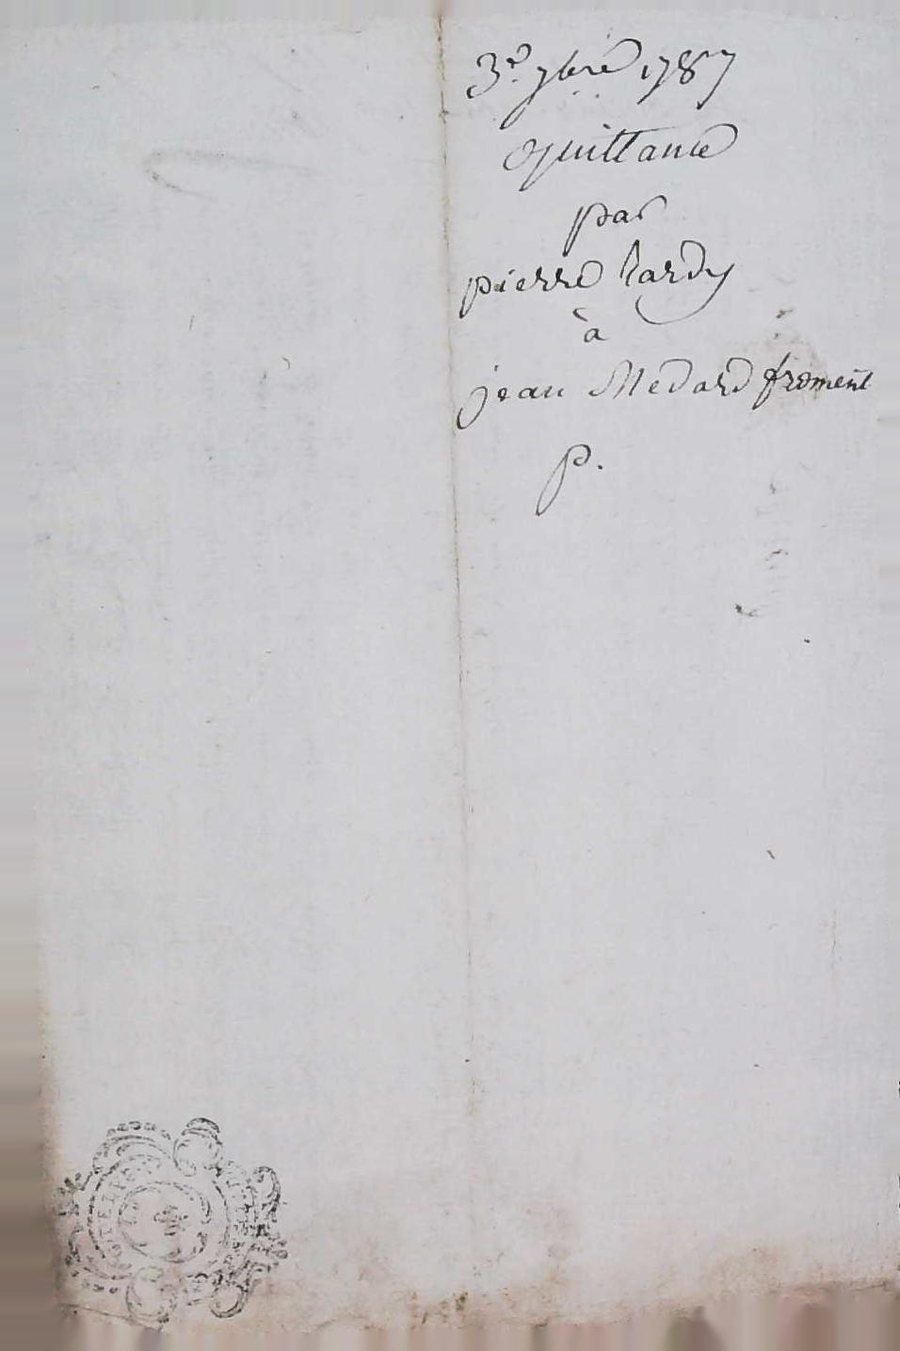 3e 7bre 1787
Quittance
par
pierre tardy
à
jean Medard froment
p.